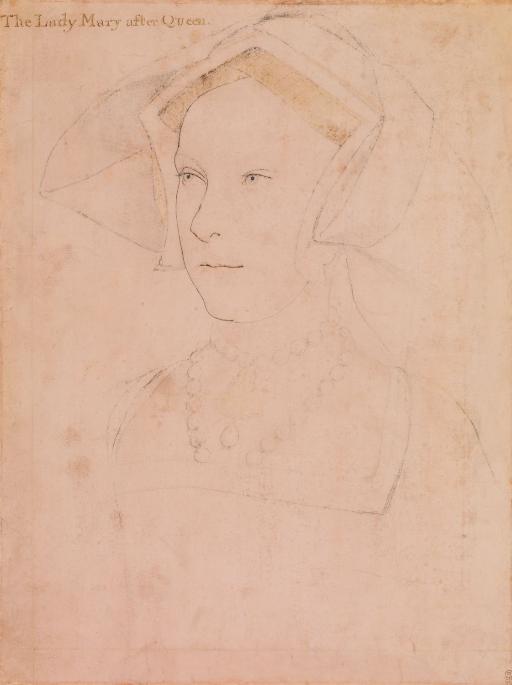 The Lady Mary after Queen.